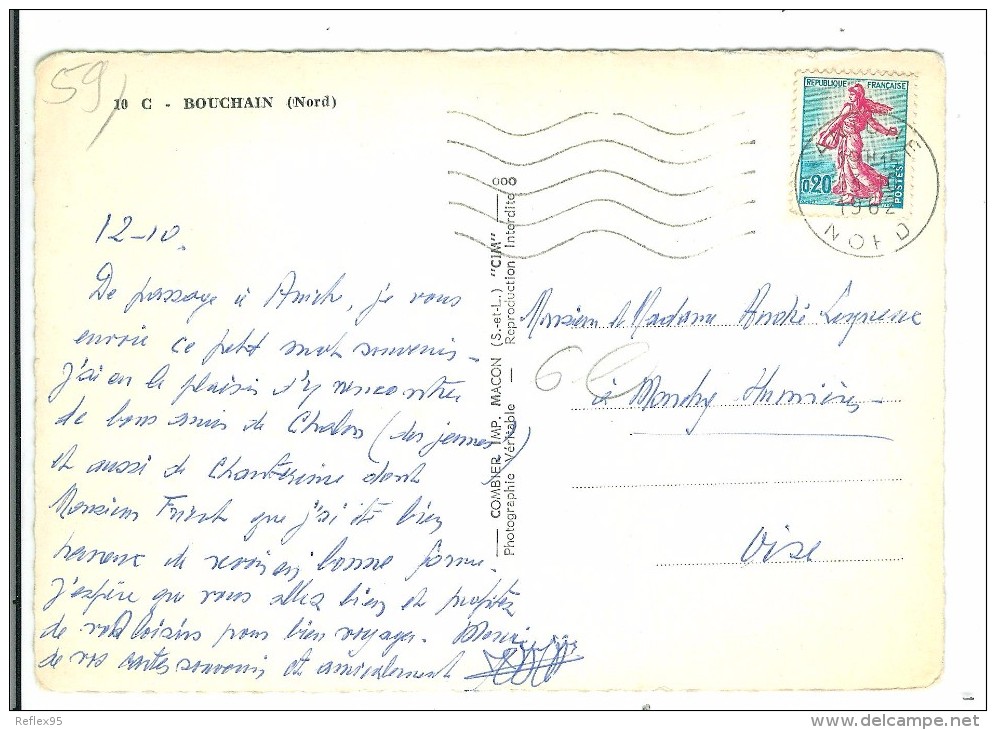 59
10 C - BOUCHAIN (Nord)
RÉPUBLIQUE FRANÇAISE
0,20
POSTES
1962
NORD
12-10.
De passage à Anich, je vous
envoie ce petit mot souvenir -
j'ai eu le plaisir d'y rencontrer
de bons amis de Chalon (des jeunes)
et aussi de Chantereine dont
Monsieur que j'ai été bien
heureux de revoir en bonne forme.
J'espère que vous allez bien et profitez
de vos loisirs pour bien voyager. Merci
de vos cartes souvenir et amicalement
COMBIER IMP. MACON (S.-et-L.) "CIM"
Photographie Véritable — Reproduction Interdite
Monsieur & Madame André
à
Oise
Reflex95
www.delcampe.net